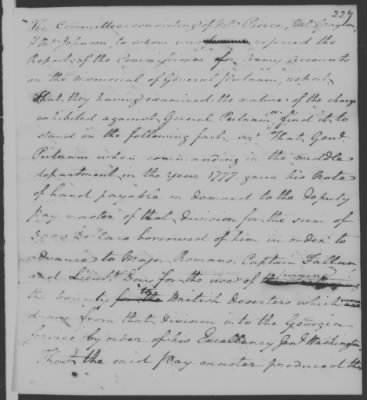 227
The Committee consisting of Mr Pierce, Mr Grayson
& Mr Johnson, to whom was referred the
Report of the Commissioner for Army accounts
on the memorial of General Putnam, report
That they having examined the nature of the charge
exhibited against General Putnam find it to
stand on the following fact. viz That Genl.
Putnam when commanding in the middle
department in the year 1777 gave his Note
of hand payable on demand to the Deputy
Pay master of that division for the sum of
Dollars borrowed of him in order to
advance to Major Romans, Captain
and Lieut. for the use of paying
the bounty to the British Deserters which were
drawn from that division into the Georgia
service by order of his Excellency Genl Washington
That the said Pay master produced the